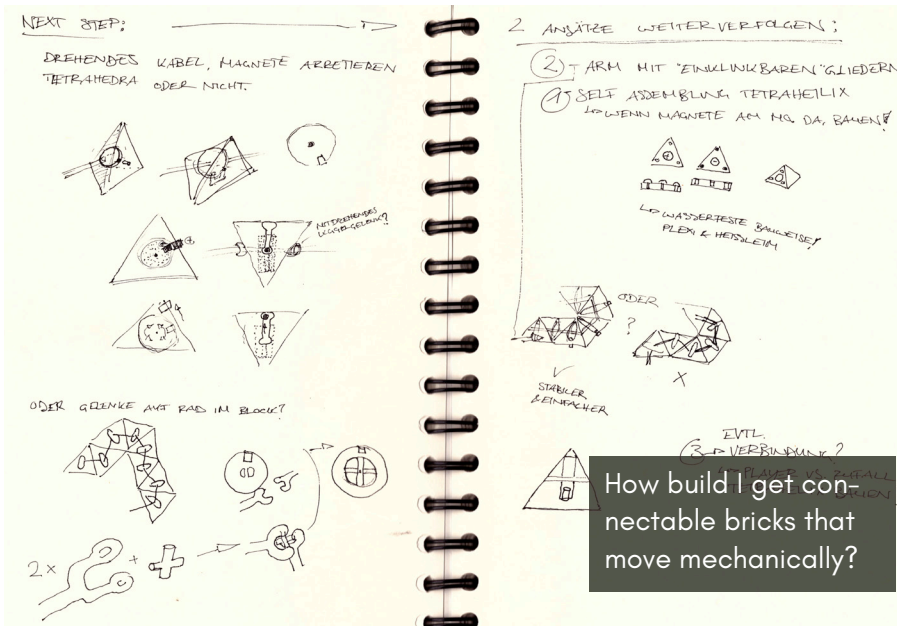 NEXT STEP:
DREHENDES KABEL, MAGNETE ARRETIEREN
TETRAHEDRA ODER NICHT.
MITDREHENDES
KUGELGELENK?
ODER GELENKE AUF RAD IM BLOCK?
2x
+
2 ANSÄTZE WEITERVERFOLGEN:
② ARM MIT "EINKLINKBAREN" GLIEDERN
① SELF ASSEMBLING TETRAHEILIX
↳ WENN MAGNETE AM MO. DA, BAUEN!
↳ WASSERFESTE BAUWEISE!
PLEXI & HEISSLEIM
ODER
?
✓
X
STABILER
& EINFACHER
EVTL.
③ VERBINDUNG?
↳ PLAYER VS. ZUFALL
BAUEN
How build I get con-
nectable bricks that
move mechanically?